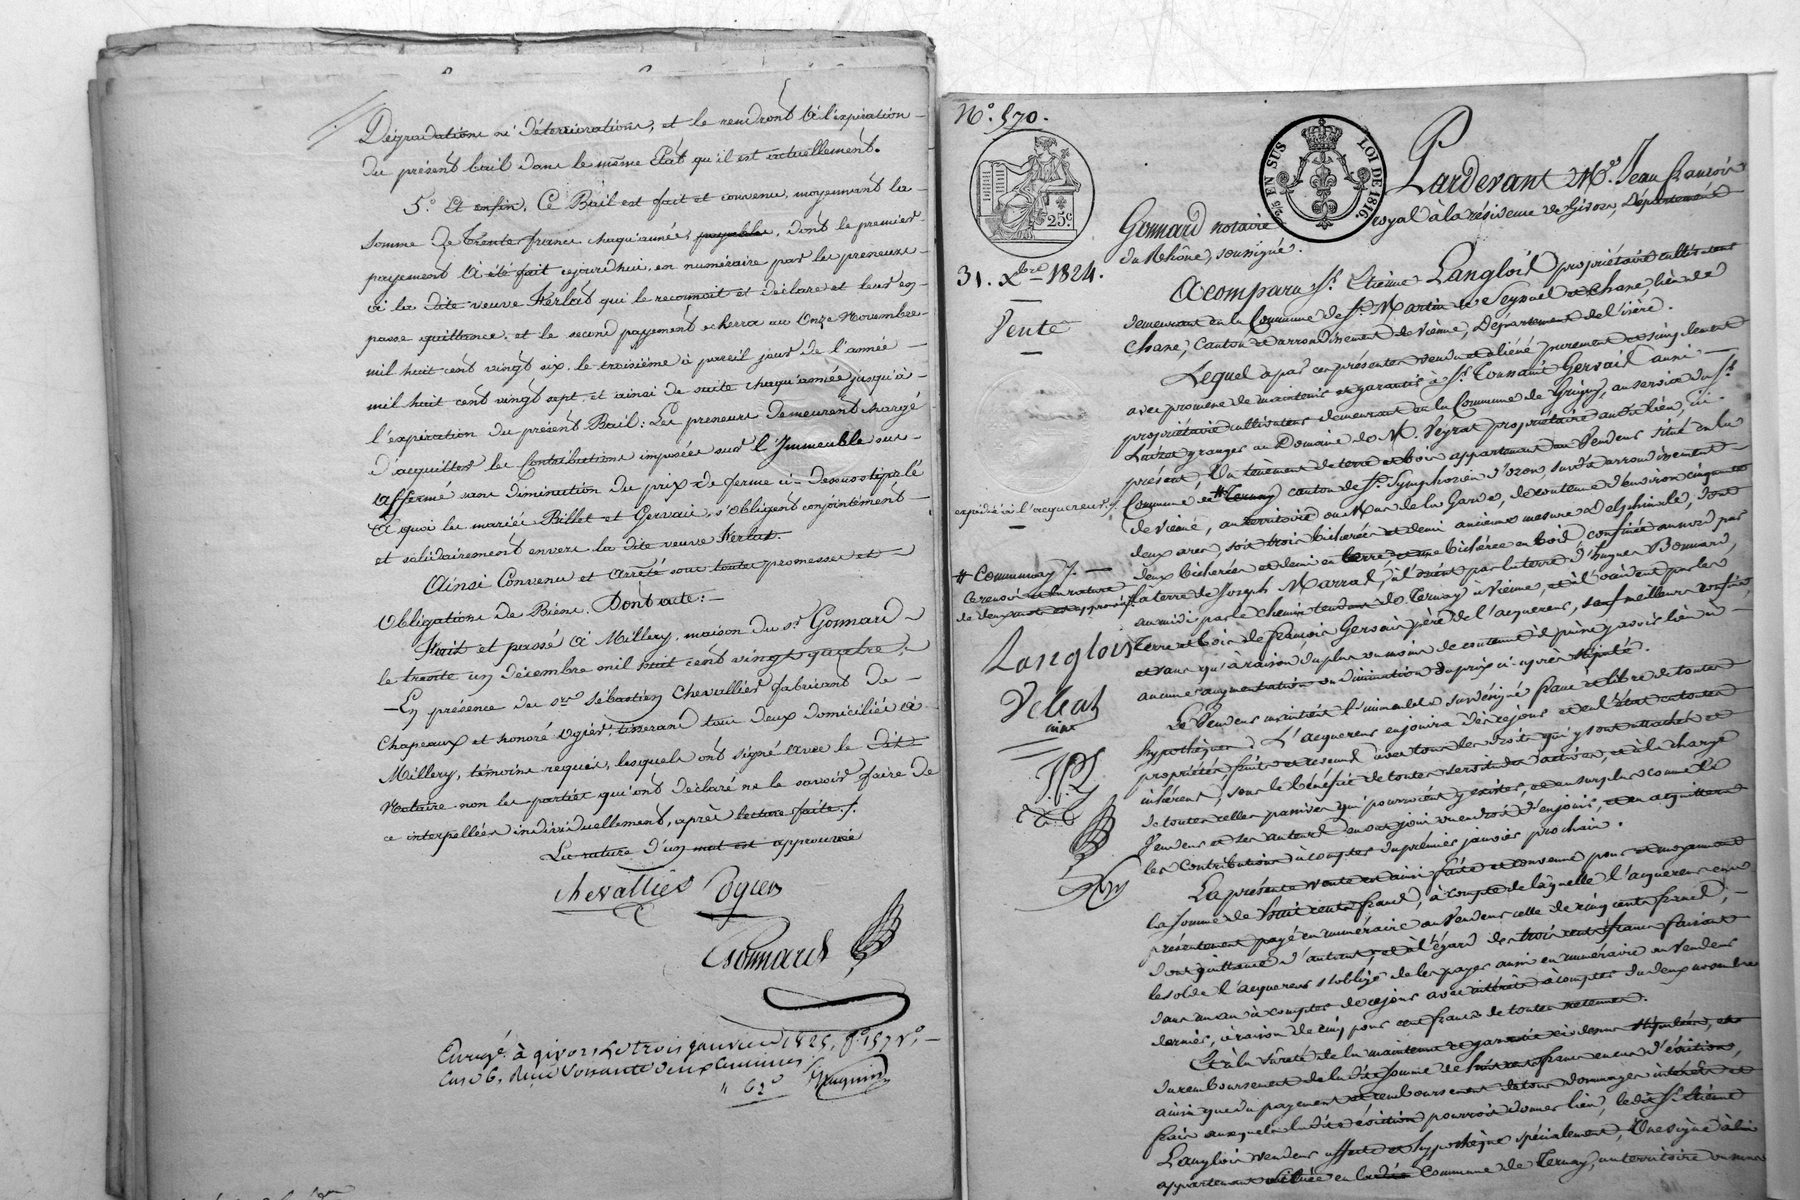 Dégradations ni détériorations, et le rendront à l'expiration
du présent bail dans le même Etat qu'il est actuellement.
5.º Et enfin, Ce Bail est fait et convenu, moyennant la
somme de trente francs chaqu'année, payables, dont le premier
payement a été fait cejourd'hui, en numéraire par les preneurs
à la dite veuve Kerlas qui le reconnoit et déclare et leur en
passe quittance, et le second payement echerra au Onze Novembre
mil huit cent vingt six, le troisième à pareil jour de l'année
mil huit cent vingt sept, et ainsi de suite chaqu'année jusqu'à
l'expiration du présent Bail: Les preneurs demeurent chargé
d'acquitter les Contributions imposées sur l'Immeuble sus-
affermé sans diminution du prix de ferme ci-dessus stipulé
à quoi les mariés Billet et Gervais, s'obligent conjointement
et solidairement envers la dite veuve Kerlas.
Ainsi Convenu et Arrêté sous toutes promesses et
Obligations de Biens. Dont acte:
Fait et passé à Millery, maison du sr. Gonnard
le trente un décembre mil huit cent vingt quatre:
En présence de srs Sébastien Chevallier fabricant de
Chapeaux et honoré Ogier, tisserand tous deux domiciliés à
Millery, témoins requis, lesquels ont signé avec le dit
Notaire non les parties qui ont déclaré ne le savoir faire de
ce interpellées individuellement, après lecture faite./.
La rature d'un mot est approuvée
Chevallier Ogier
Gonnard
Enregé. à givors Le trois janvier 1825, fº 157 vº,
Case 6, Reçu Soixante deux Centimes
" 62
Nº. 570.
25 EN SUS LOI DE 1816.
25c
31. Xbre 1824.
Vente
expédié à l'acquereur./.
# Communay /.
Ce renvoi et la rature
de deux mots est approuvé
Langlois
Velat
Pardevant Me. Jean françois
Gonnard notaire royal à la résidence de Givors, Département
du Rhône, soussigné.
A comparu sr. Etienne Langlois propriétaire cultivateur
demeurant en la Commune de St. Martin de Seyssuel et Chane, lieu de
Chane, canton et arrondissement de Vienne, Département de l'isère.
Lequel a par ces présentes vendu et aliéné purement et simplement
avec promesse de maintenir et garantir à sr. Toussaint Gervais aussi
propriétaire cultivateur demeurant en la Commune de Grigny, au service du sr.
granger au Domaine de M. Veyrat propriétaire audit lieu, ici
présent, Un tènement de terre et bois appartenant au Vendeur situé en la
Commune de # Ternay canton de St. Symphorien d'ozon, susdit arrondissement
de Vienne, au territoire du Mas de la Garde, de contenue d'environ cinquante
deux ares, soit trois bicherées et demi ancienne mesure delphinale, dont
deux bicherées et demi en terre et une bicherée en bois, confiné au nord par
la terre de Joseph Marral, à l'orient par la terre d'hugues Bonnard,
au midi par le chemin tendant de Ternay à Vienne, et à l'occident par les
terre et bois de françois Gervais père de l'acquereur, sauf meilleurs confins,
et sans qu'à raison du plus ou moins de contenue il puisse y avoir lieu à
aucune augmentation ou diminution du prix ci-après stipulé.
Le Vendeur maintient l'immeuble susdésigné franc et libre de toutes
hypothèques. L'acquereur en jouira dès ce jour et en l'état en toutes
propriétés fruits et revenus avec tous les droits qui y sont attachés et
inhérent, sous le bénéfice de toutes servitudes actives, et à la charge
de toutes celles passives qui pourroient y exister, et au surplus comme le
Vendeur et ses auteurs en ont joui ou eu droit d'en jouir, et en acquittera
les contributions à compter du premier janvier prochain.
La présente vente est ainsi faite et convenue pour et moyennant
la somme de huit cents francs, à compte de laquelle l'acquereur en a
présentement payé en numéraire au Vendeur celle de cinq cents francs,
dont quittance d'autant, et à l'égard des trois cent francs faisant
le solde l'acquereur s'oblige de les payer aussi en numéraire au Vendeur
dans un an à compter de ce jour avec intérêts à compter du deux novembre
dernier, à raison de cinq pour cent francs de toutes retenues.
Et à la sûreté de la maintenue et garantie ci-dessus stipulée, et
du remboursement de la dite somme de huit cent francs en cas d'éviction,
ainsi que du payement et remboursement de tous dommages intérêts et
frais auxquels la dite éviction pourroit donner lieu, le dit sr. Etienne
Langlois vendeur affecte et hypothèque spécialement, Une vigne à lui
appartenant située en la dite Commune de Ternay, au territoire